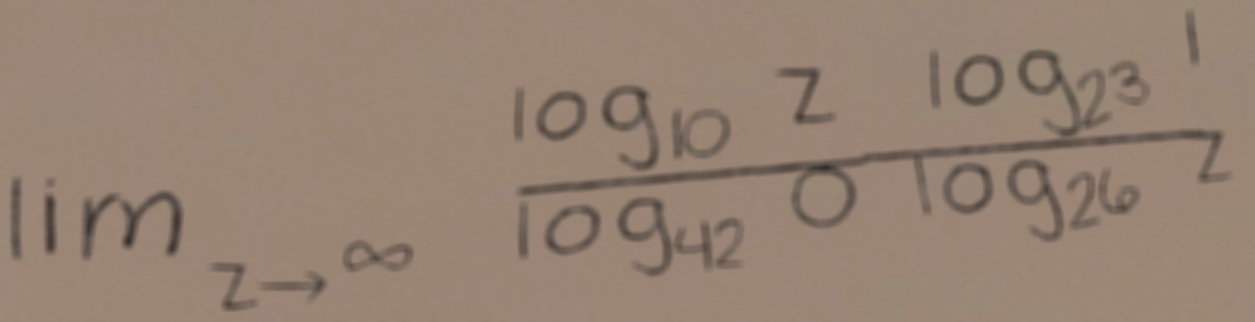 lim z→∞ \frac{log_{10} z log_{23} 1}{log_{42} 0 log_{26} z}